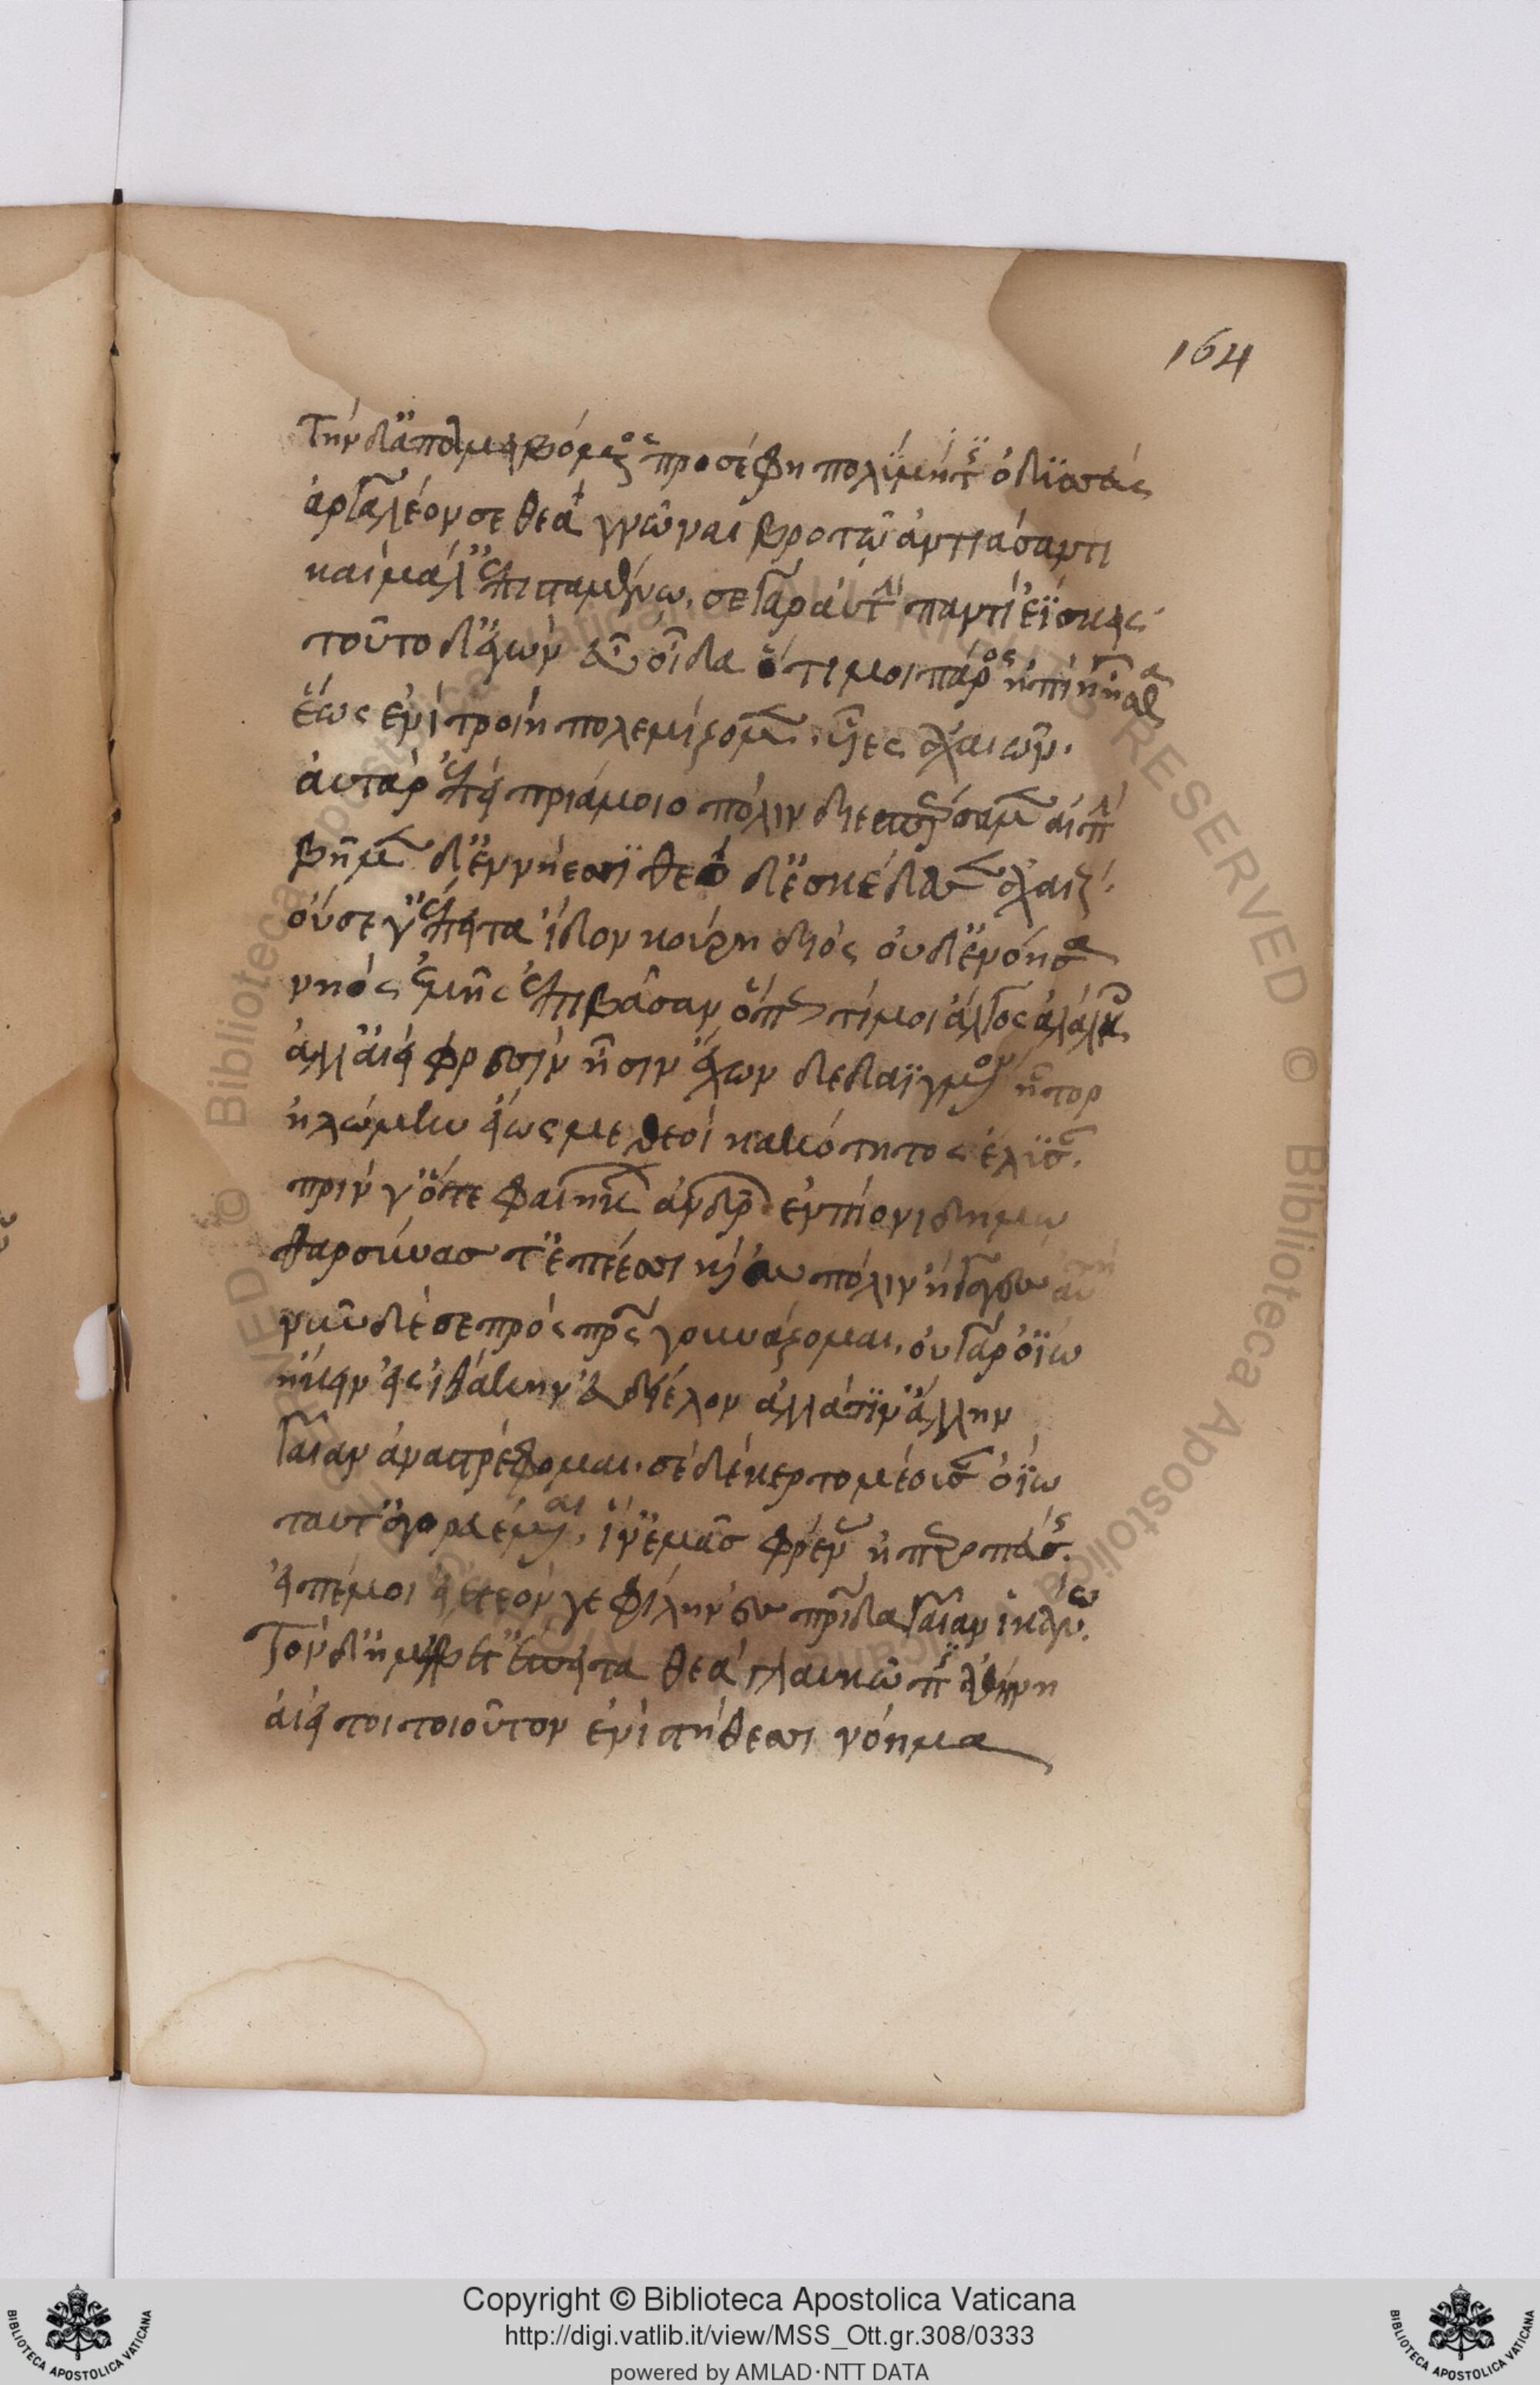 164
Τὴν δ' ἀπαμειβόμενος προσέφη πολύμητις ὀδυσσεύς
ἀργαλέον σε θεὰ γνῶναι βροτῷ ἀντιάσαντι
καὶ μάλ' ἐπισταμένω. σὲ γὰρ αὐτὴν παντὶ ἐΐσκεις
τοῦτο δ' ἐγὼν εὖ οἶδα ὅτι μοι πάρος ἠπίη ἦσθα
ἕως ἐνὶ τροίη πολεμίζομεν. υἷες ἀχαιῶν.
αὐτὰρ ἐπεὶ πριάμοιο πόλιν διεπέρσαμεν αἰπὴν
βῆμεν δ' ἐν νήεσσι θεὸς δ' ἐσκέδασεν ἀχαιούς.
οὔ σε γ' ἔπειτα ἴδον κούρη διός οὐδ' ἐνόησα
νηὸς ἐμῆς ἐπιβᾶσαν ὅπως τί μοι ἄλγος ἀλάλκοις
ἀλλ' αἰεὶ φρεσὶν ᾗσιν ἔχων δεδαϊγμένον ἦτορ
ἠλώμην εἵως με θεοὶ κακότητος ἔλυσαν.
πρίν γ' ὅτε φαιήκων ἀνδρῶν ἐν πίονι δήμω
θάρσυνας τ' ἐπέεσσι καὶ ἐς πόλιν ἤγαγες αὐτή
νῦν δέ σε πρὸς πατρὸς γουνάζομαι. οὐ γὰρ ὀΐω
ἥκειν εἰς ἰθάκην εὐδείελον ἀλλά τιν' ἄλλην
γαῖαν ἀναστρέφομαι. σὲ δὲ κερτομέουσαν ὀΐω
ταῦτ' ἀγορευέμεναι. ἵν' ἐμὰς φρένας ἠπεροπεύσης.
εἰπέ μοι εἰ ἐτεόν γε φίλην ἐς πατρίδα γαῖαν ἱκάνω.
Τὸν δ' ἠμείβετ' ἔπειτα θεὰ γλαυκῶπις ἀθήνη
αἰεί τοι τοιοῦτον ἐνὶ στήθεσσι νόημα
Copyright © Biblioteca Apostolica Vaticana
http://digi.vatlib.it/view/MSS_Ott.gr.308/0333
powered by AMLAD·NTT DATA